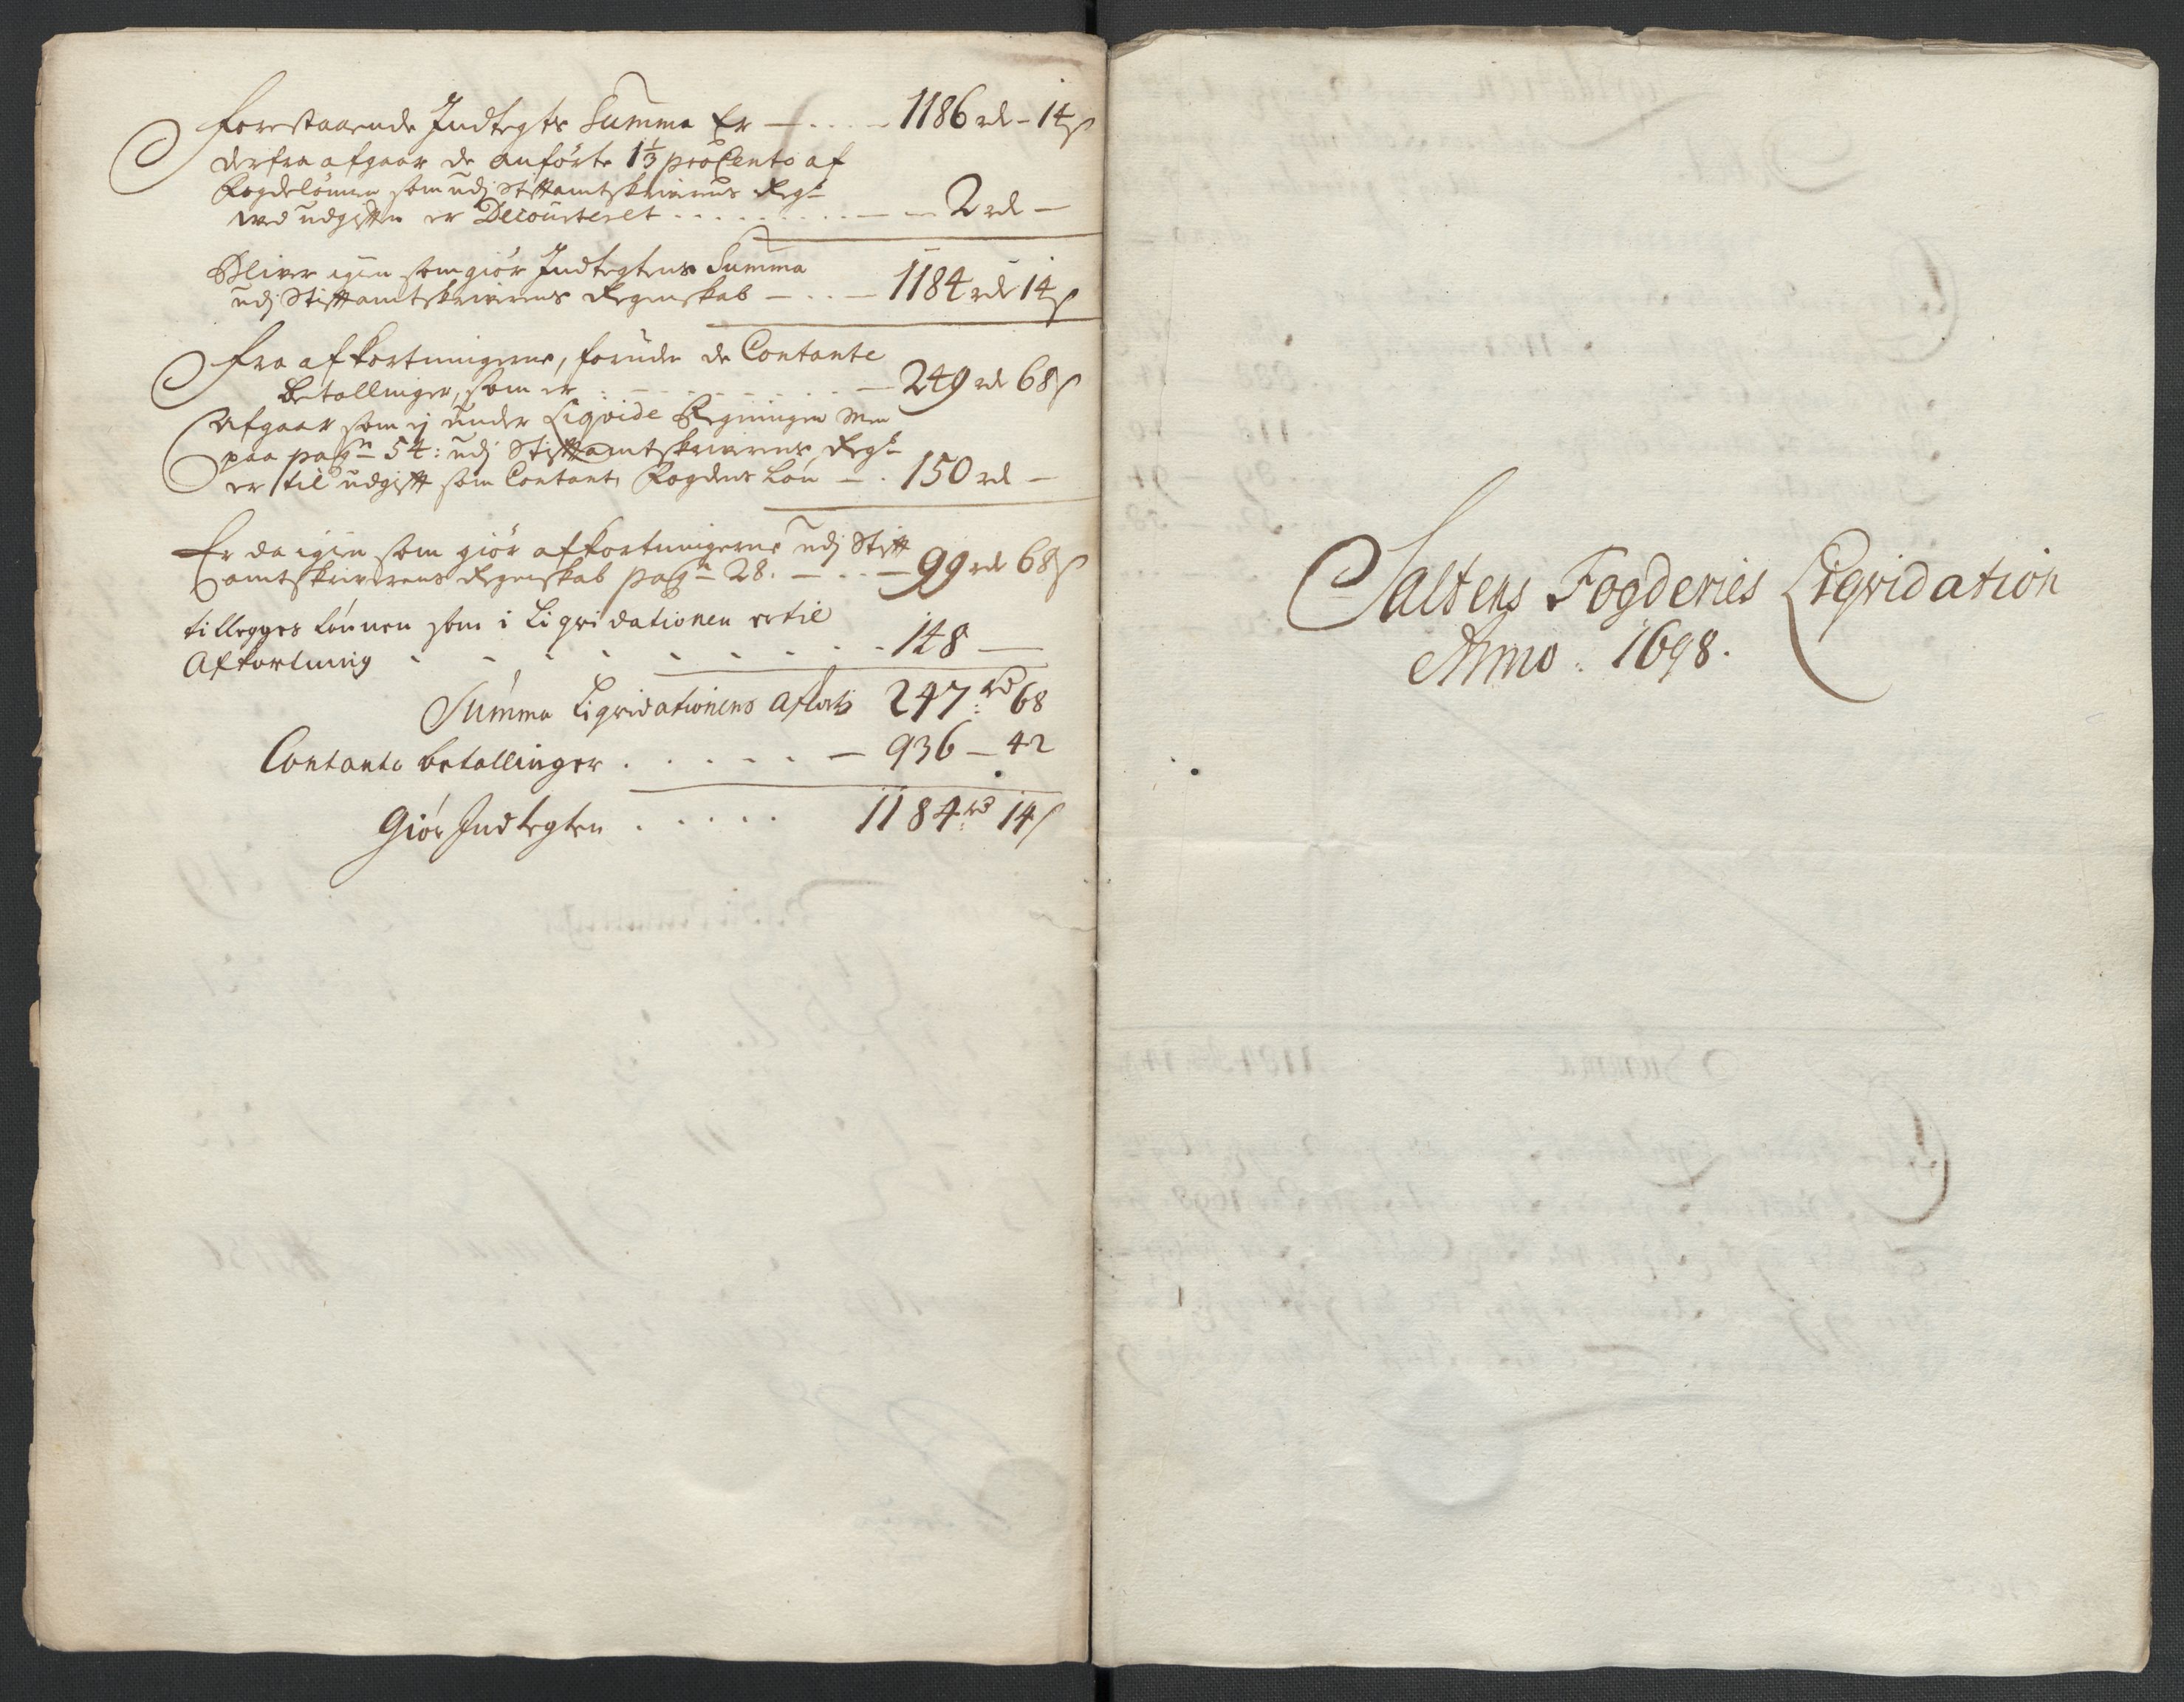 forestaaende Indtegts Summa Er — . . . . 1186 rdr – 14 ß
derfra afgaar de anförte 1 1/3 pro Cento af
Fogdelönnen som udj Stiftamtskrivernes Regsk.
ved udgiften er Decourteret . . . . . . . . — 2 rdr —
Bliver igien som giör Indtegtens Summa
udj Stiftamtskriverens Regenskab — . . — 1184 rdr 14 ß
fra afkortningerne, foruden de Contante
betallinger, som er . . . . . . . . — 249 rdr 68 ß
Afgaar som ej under Liqvide Regningen Men
paa pagn 54: udj Stiftamtskriverens Regsk
er til udgift som Contant Fogdens Lön — . 150 rdr —
Er da igien som giör afkortningerne udj Stift
amtskriverens Regenskab pagn 28. — . . — 99 rdr 68 ß
tillegges lönnen som i Liqvidationen er til
Afkortning . . . . . . . . . 148 —
Summa Liqvidationens Afkort: 247 rd 68
Contante betallinger . . . . . . — 936 — 42
Giör Indtegten . . . . . 1184 rd 14 ß
Saltens Fogderies Liqvidation
Anno . 1698.